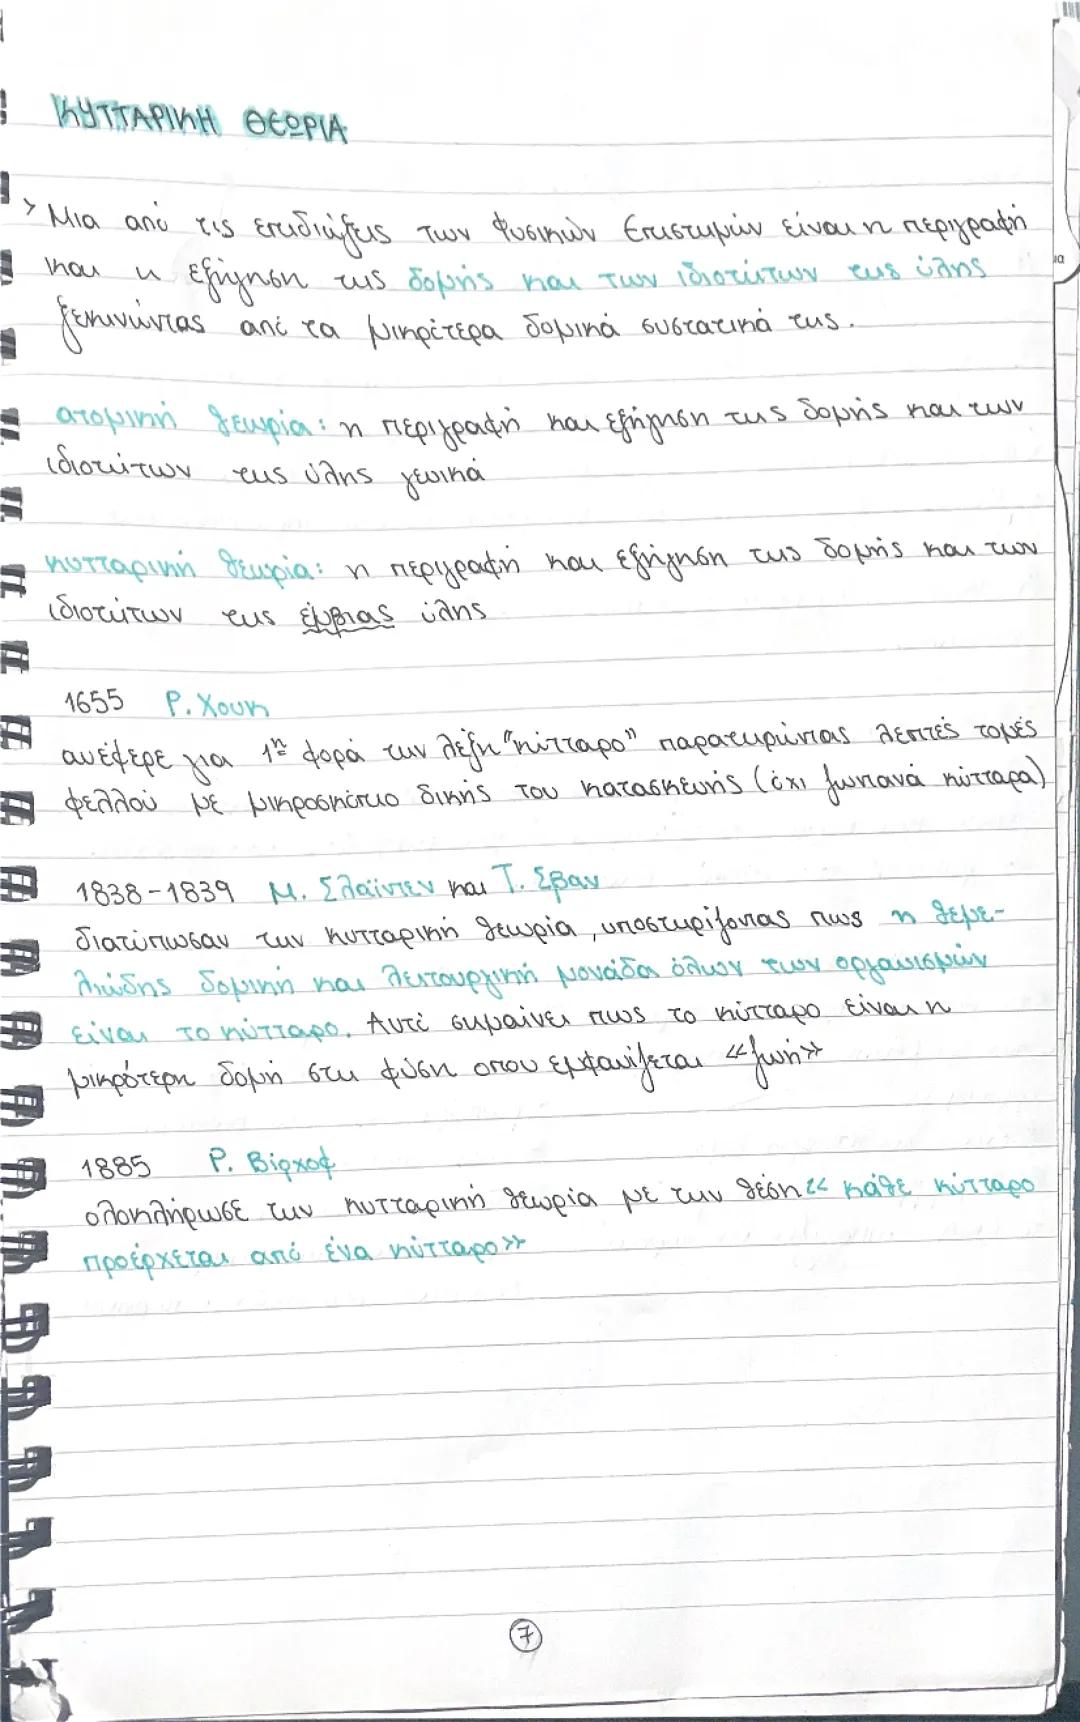 ΚΥΤΤΑΡΙΚΗ ΘΕΩΡΙΑ
> Μια από τις επιδιώξεις των Φυσικών Επιστημών είναι η περιγραφή
και η εξήγηση της δομής και των ιδιοτήτων της ύλης
ξεκινώντας από τα μικρότερα δομικά συστατικά της.
ατομική θεωρία: η περιγραφή και εξήγηση της δομής και των
ιδιοτήτων της ύλης γενικά
κυτταρική θεωρία: η περιγραφή και εξήγηση της δομής και των
ιδιοτήτων της έμβιας ύλης
1655 Ρ. Χουκ
ανέφερε για 1η φορά την λέξη "κύτταρο" παρατηρώντας λεπτές τομές
φελλού με μικροσκόπιο δικής του κατασκευής (όχι ζωντανά κύτταρα)
1838-1839 Μ. Σλάιντεν και Τ. Σβαν
διατύπωσαν την κυτταρική θεωρία, υποστηρίζοντας πως η θεμε-
λιώδης δομική και λειτουργική μονάδα όλων των οργανισμών
είναι το κύτταρο. Αυτό σημαίνει πως το κύτταρο είναι η
μικρότερη δομή στη φύση οπου εμφανίζεται «ζωή»
1885 Ρ. Βίρχοφ
ολοκλήρωσε την κυτταρική θεωρία με την θέση « κάθε κύτταρο
προέρχεται από ένα κύτταρο»
7